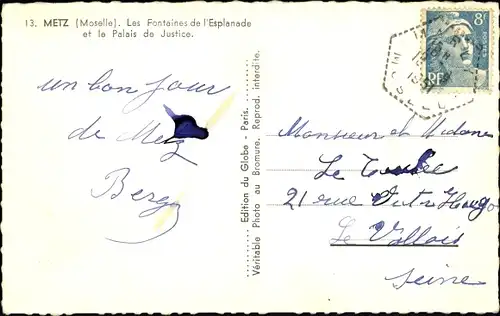 13. METZ (Moselle). Les Fontaines de l'Esplanade
et le Palais de Justice.
8F
POSTES
RF
MOSELLE
un bon jour
de Metz
Edition du Globe - Paris.
Véritable Photo au Bromure. Reprod. interdite.
Monsieur et Madame
Le
21 rue Victor Hugo
Le Vallois
Seine